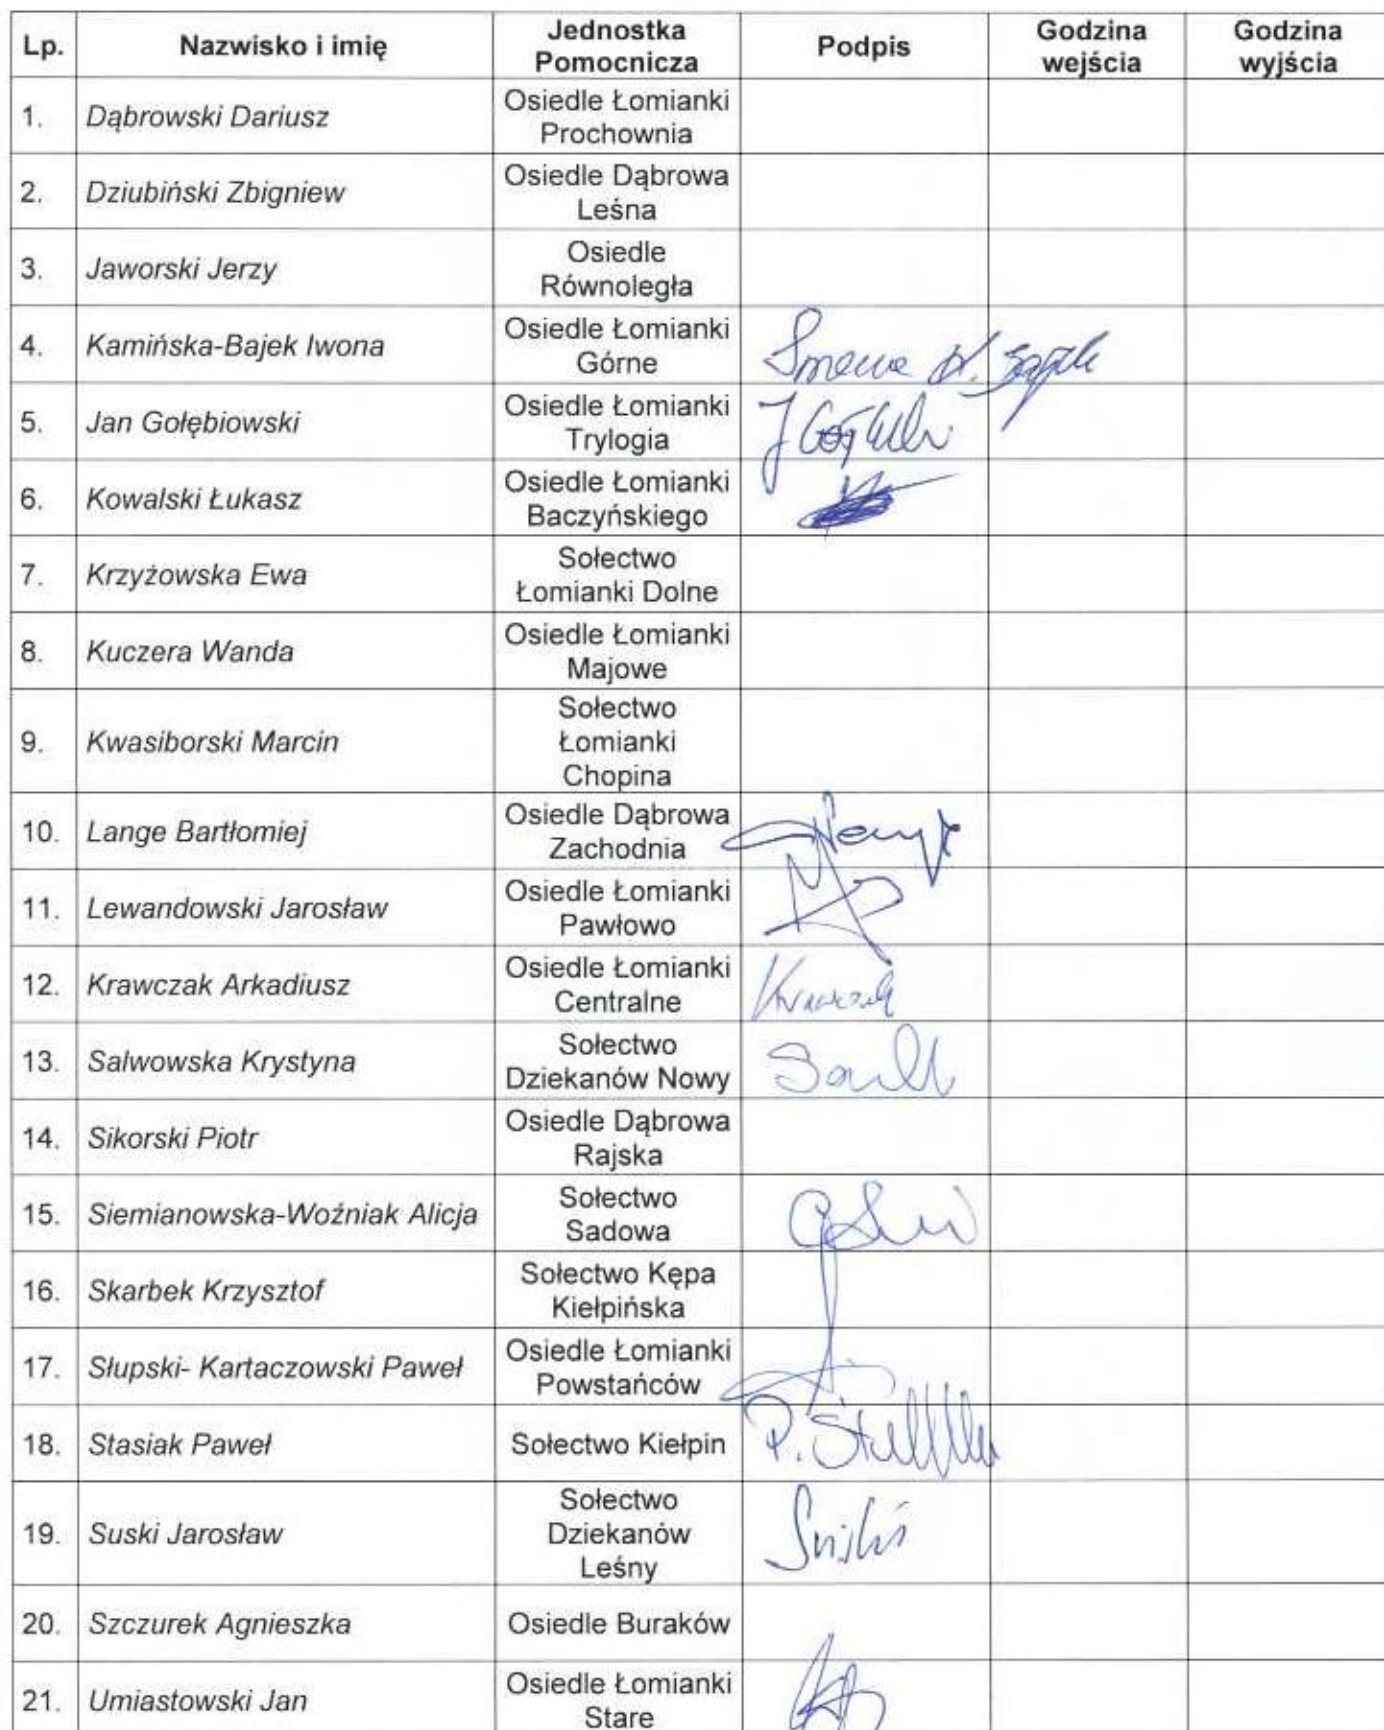 Lp. Nazwisko i imię Jednostka Pomocnicza Podpis Godzina wejścia Godzina wyjścia
1. Dąbrowski Dariusz Osiedle Łomianki Prochownia
2. Dziubiński Zbigniew Osiedle Dąbrowa Leśna
3. Jaworski Jerzy Osiedle Równoległa
4. Kamińska-Bajek Iwona Osiedle Łomianki Górne
5. Jan Gołębiowski Osiedle Łomianki Trylogia
6. Kowalski Łukasz Osiedle Łomianki Baczyńskiego
7. Krzyżowska Ewa Sołectwo Łomianki Dolne
8. Kuczera Wanda Osiedle Łomianki Majowe
9. Kwasiborski Marcin Sołectwo Łomianki Chopina
10. Lange Bartłomiej Osiedle Dąbrowa Zachodnia
11. Lewandowski Jarosław Osiedle Łomianki Pawłowo
12. Krawczak Arkadiusz Osiedle Łomianki Centralne
13. Salwowska Krystyna Sołectwo Dziekanów Nowy
14. Sikorski Piotr Osiedle Dąbrowa Rajska
15. Siemianowska-Woźniak Alicja Sołectwo Sadowa
16. Skarbek Krzysztof Sołectwo Kępa Kiełpińska
17. Słupski- Kartaczowski Paweł Osiedle Łomianki Powstańców
18. Stasiak Paweł Sołectwo Kiełpin
19. Suski Jarosław Sołectwo Dziekanów Leśny
20. Szczurek Agnieszka Osiedle Buraków
21. Umiastowski Jan Osiedle Łomianki Stare